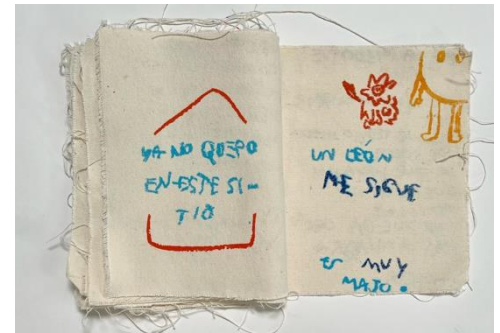 YA NO QUEPO
EN ESTE SI-
TIO
UN LEÓN
ME SIGUE
ES MUY
MAJO.